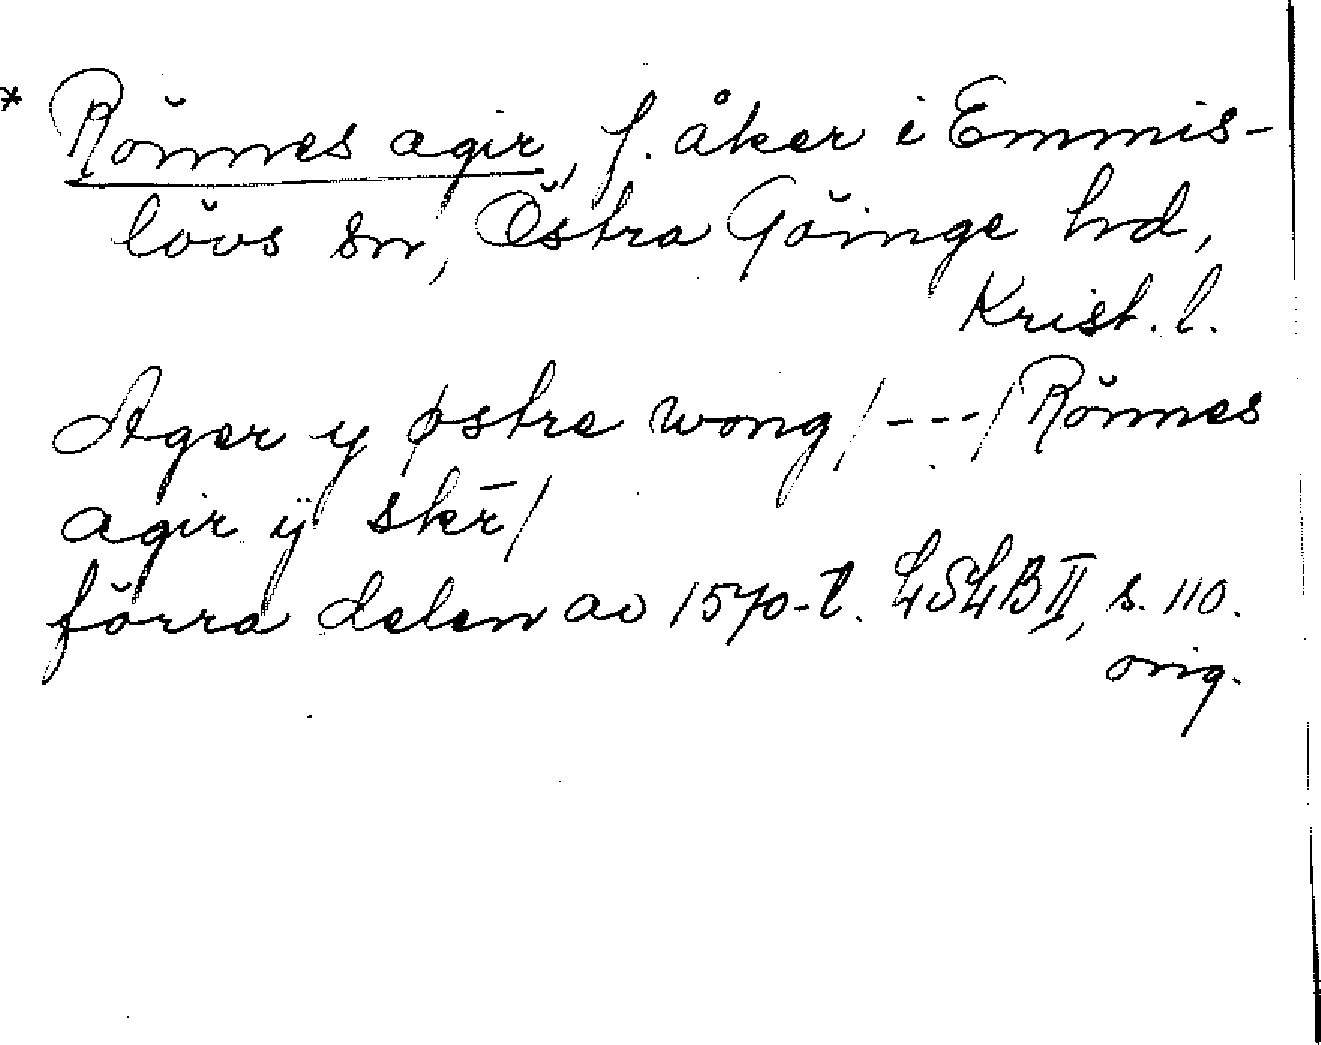 * Rönnes agir, f. åker i Emmis-
lövs sn, Östra Göinge hd,
Krist. l.
Ager y østre wong/---/Rönnes
agir ÿ skr̄/
förra delen av 1570-t. LSLB II, s. 110.
orig.